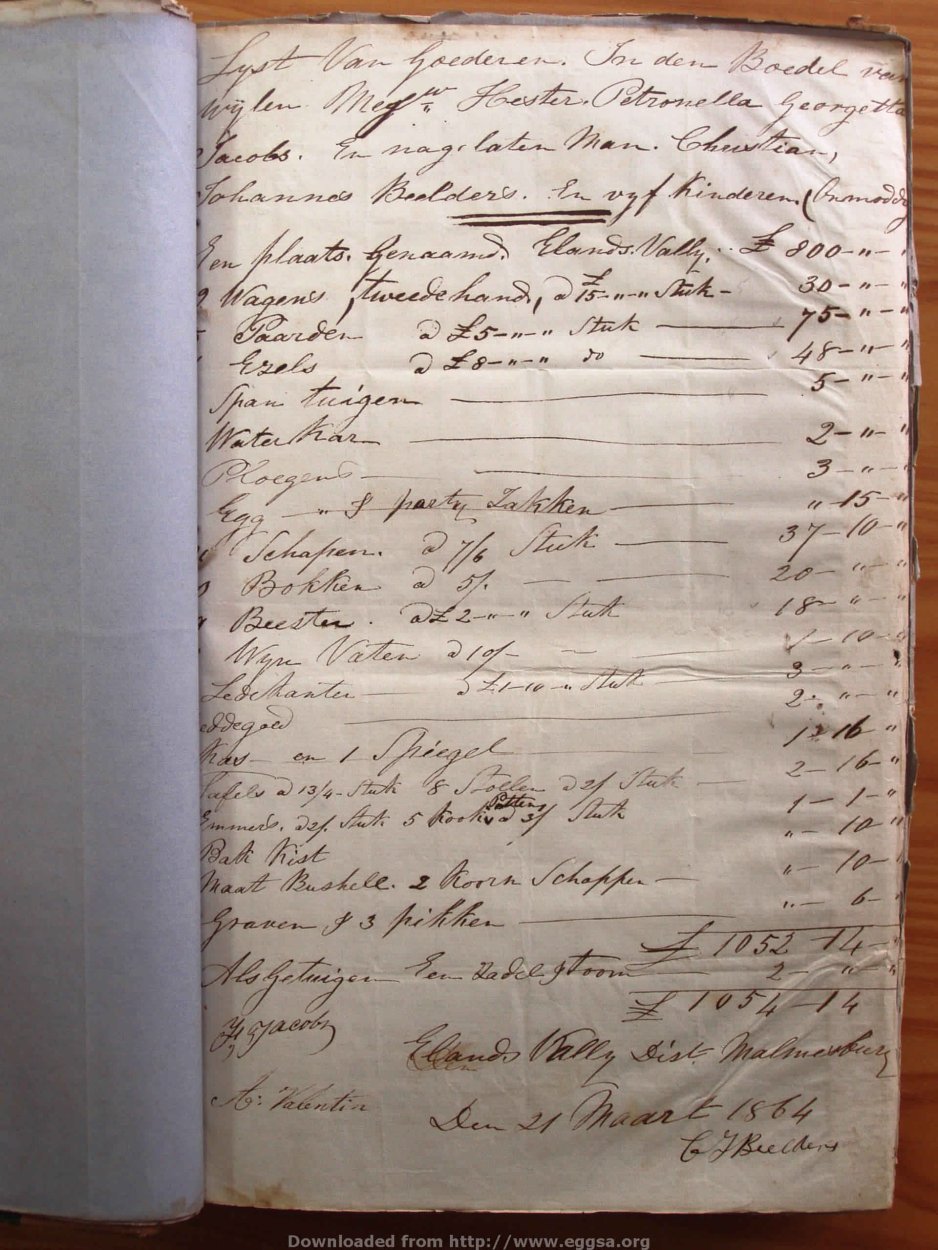 Lyst Van Goederen. In den Boedel van
Wylen Mejuw Hester. Petronella Georgetta
Jacobs. En nagelaten Man. Christian,
Johannes Beelders. En vyf Kinderen. (Onmondig
Een plaats. Genaamd. Elands. Vally. £ 800-"-"
2 Wagens, tweedehand, a £15-"-" Stuk - 30-"-"
Paarden a £5-"-" Stuk 75-"-"
Ezels a £8-"-" do 48-"-"
Span tuigen 5-"-"
Water Kar 2-"-"
Ploegens 3-"-"
Egg " & party Zakken "-15-"
Schapen. a 7/6 Stuk 37-10-"
Bokken a 5/. 20-"-"
Beesten. a £2-"-" Stuk 18-"-"
Wyn Vaten a 10/- 1-10-"
Ledekanten a £1-10-" Stuk 3-"-"
eddegoed 2-"-"
Kas - en 1 Spiegel 16-"
Tafels a 13/4- Stuk 8 Stollen a 2/ Stuk 2-16-"
Emmers. a 2/. Stuk 5 Kook Potten a 3/ Stuk 1-1-"
Bak Kist "-10-"
Maat Bushell. 2 Koorn Schoppen "-10-
Graven & 3 pikken "-6-
£ 1052-14-"
Als Getuigen Een Zadel & toom 2-"-"
£ 1054-14
Jacobs
Elands Vally Dist. Malmesbury
A. Valentin
Den 21 Maart 1864
C J Beelders
Downloaded from http://www.eggsa.org